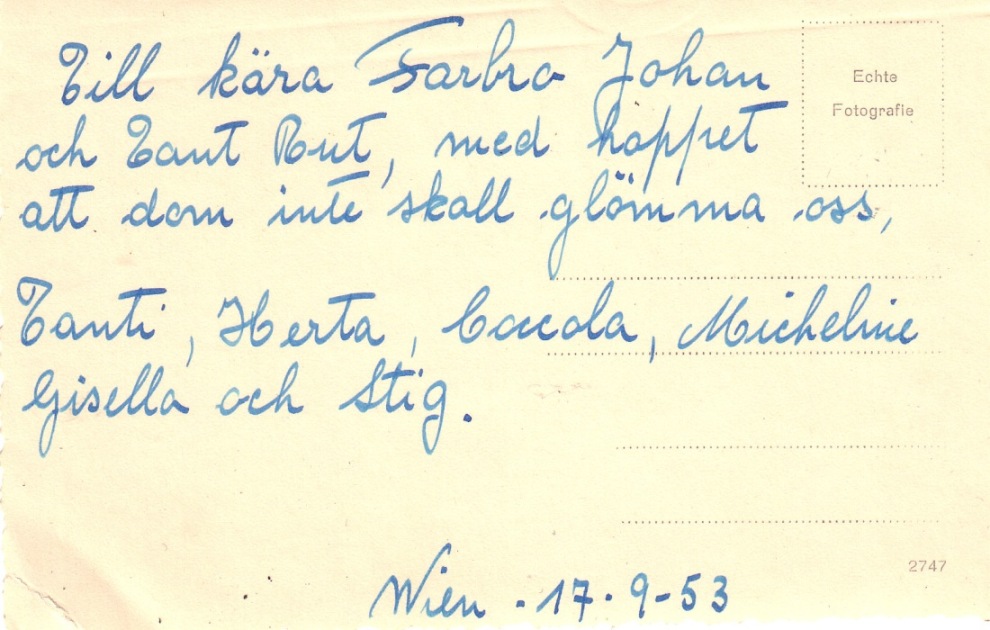 Till kära Farbro Johan
Echte
Fotografie
och Tant Rut, med hoppet
att dom inte skall glömma oss,
Tanti, Herta, Coccola, Micheline
Gisella och Stig.
2747
Wien - 17. 9-53